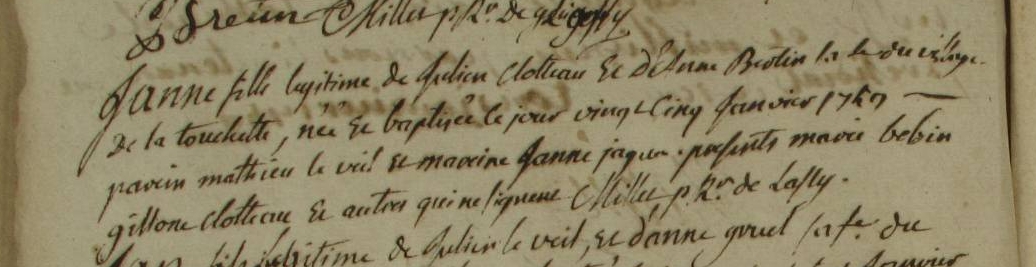 Millet p. Rr. de
Janne fille legitime de Julien Clotteau Et d'Anne Brotin sa fe du village
De la touchette, née Et baptisée le jour vingt Cinq Janvier 1759
parein mathieu le veil Et mareine Janne jaqua. presents marie bebin
gillonne Clotteau Et autres qui ne signent Millet p. Rr. de Lassy.
fils legitime de Julien le veil, Et d'anne gruel sa fe. du
Janvier